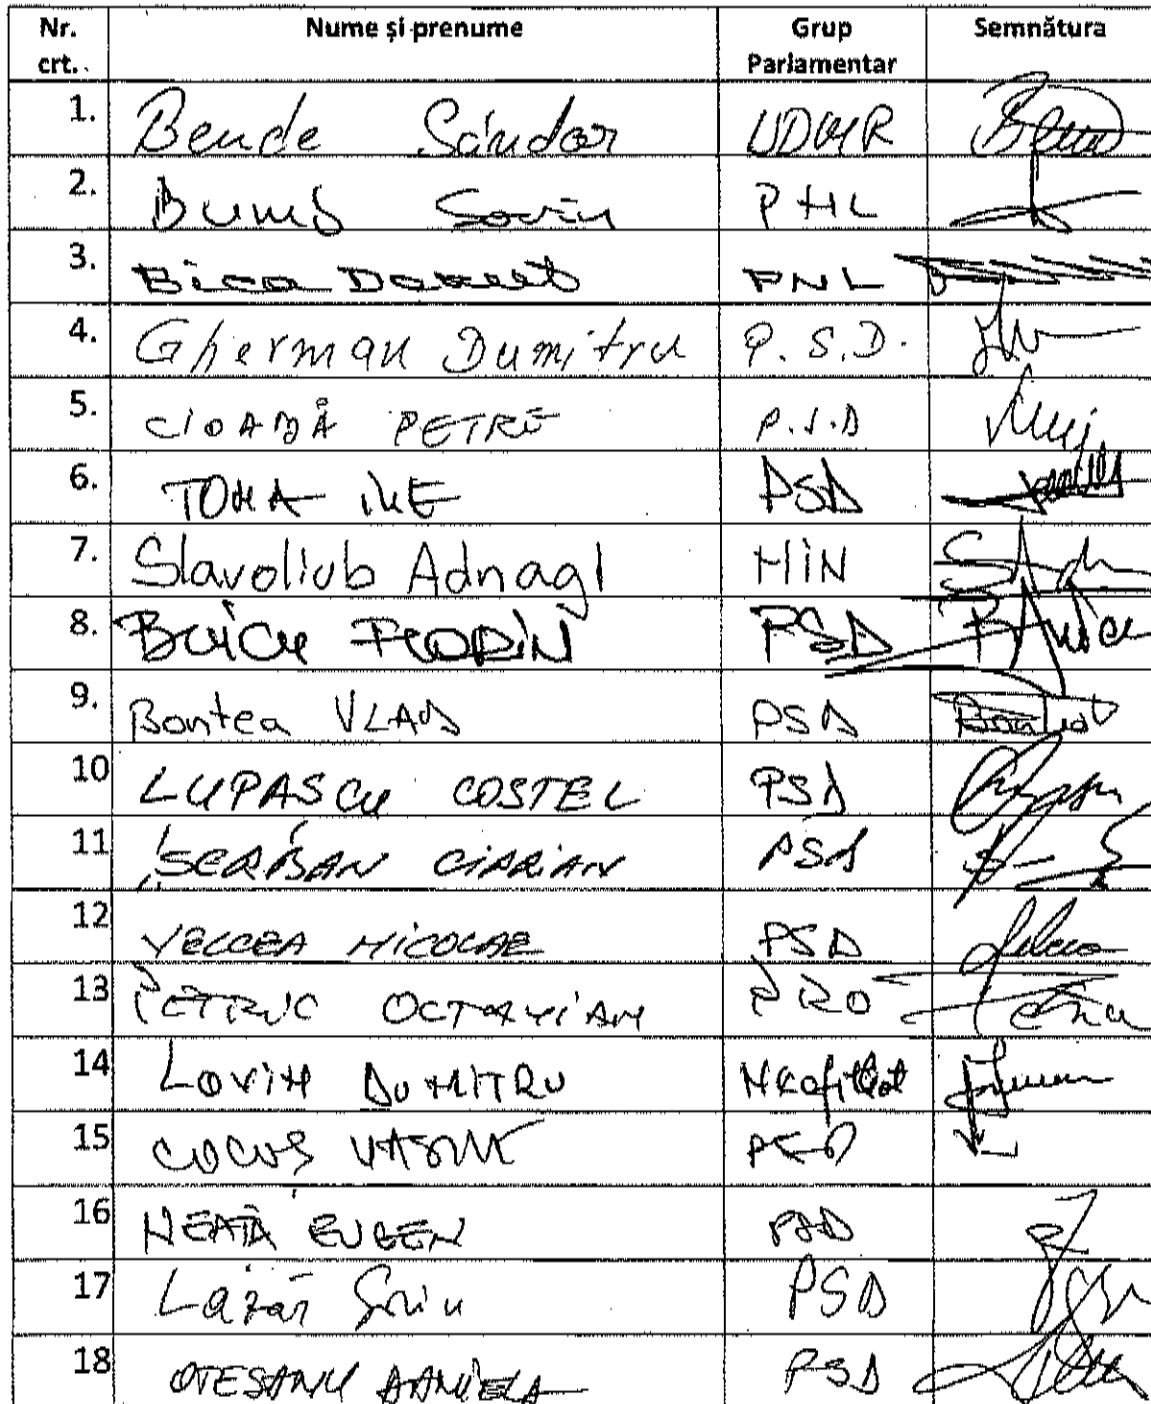 Nr. crt. Nume și prenume Grup Parlamentar Semnătura
1. Bende Sándor UDMR
2. Bumb Sorin PNL
3. Bica Dănuț PNL
4. Gherman Dumitru P.S.D.
5. CIOABĂ PETRE P.S.D
6. TOMA ILIE PSD
7. Slavoliub Adnagi MIN
8. BUICU FLORIN PSD
9. Bontea VLAD PSD
10 LUPASCU COSTEL PSD
11 ȘERBAN CIPRIAN PSD
12 VELCEA NICOLAE PSD
13 PETRIC OCTAVIAN PRO
14 LOVIN DUMITRU Neafiliat
15 COCOS VASILE PSD
16 NEATĂ EUGEN PSD
17 Lazăr Sorin PSD
18 OTESANU DANIELA PSD